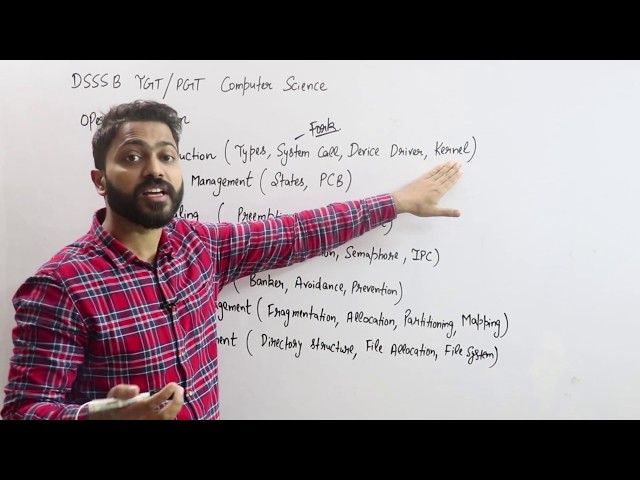 DSSSB TGT/PGT Computer Science
Fork
(Types, System Call, Device Driver, Kernel)
Management (States, PCB)
Semaphore, IPC)
Banker, Avoidance, Prevention)
(Fragmentation, Allocation, Partitioning, Mapping)
(Directory structure, File Allocation, File System)